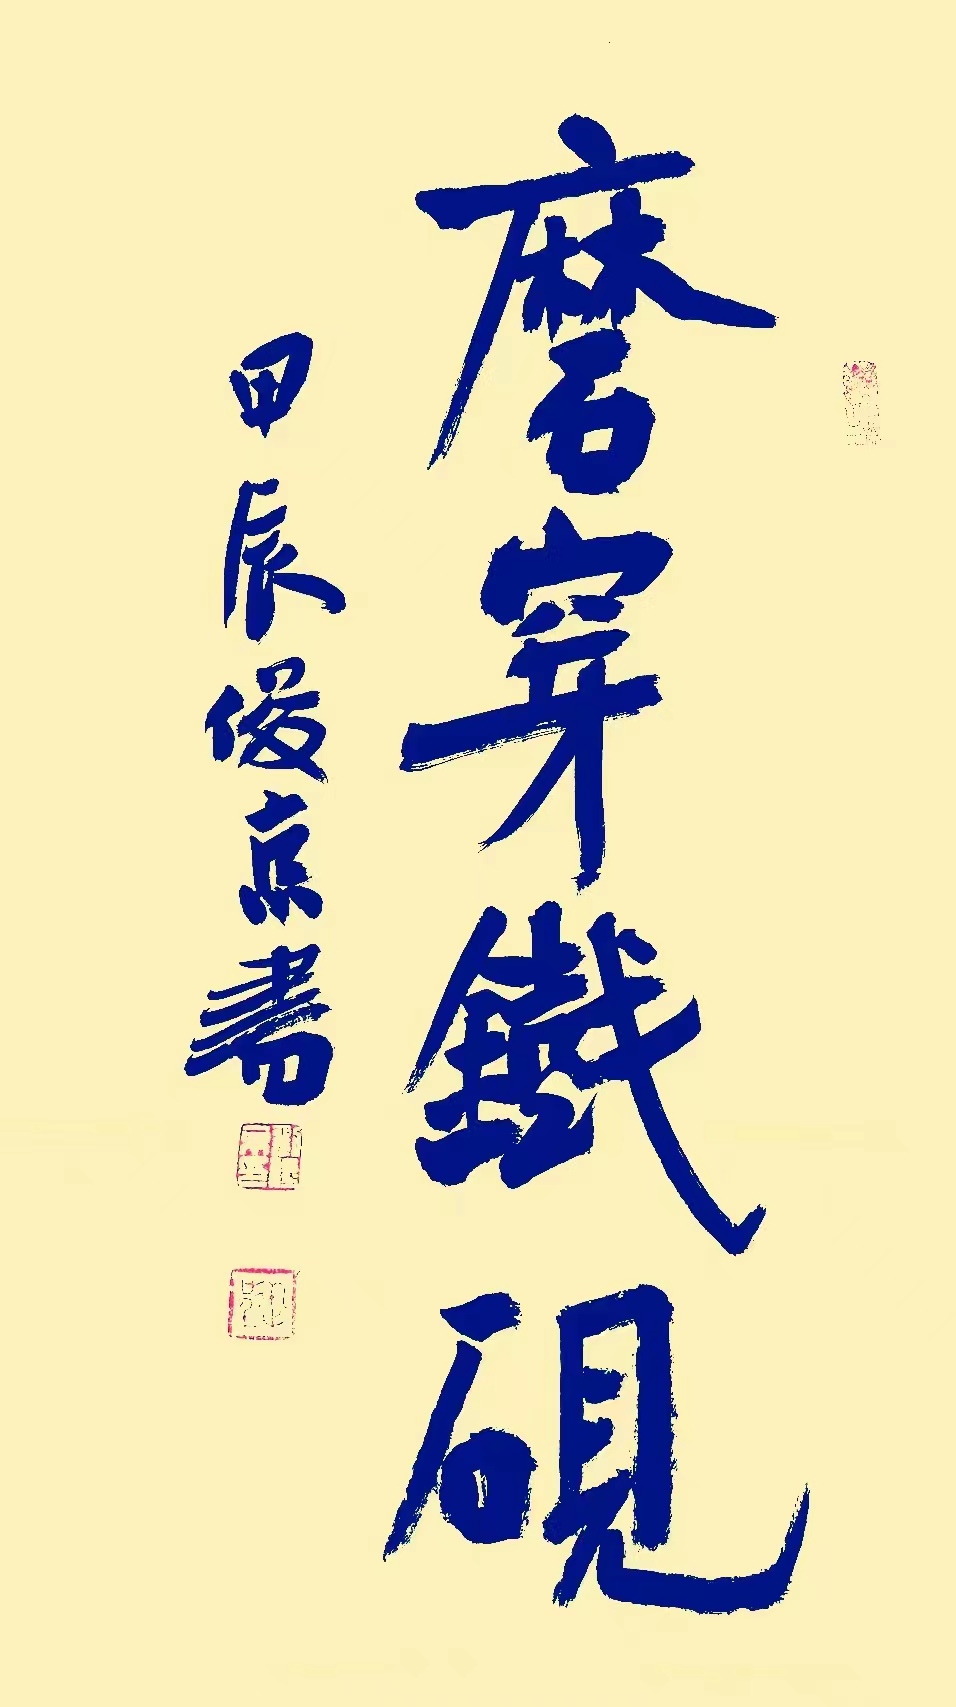 磨穿鐵硯
甲辰俊京書